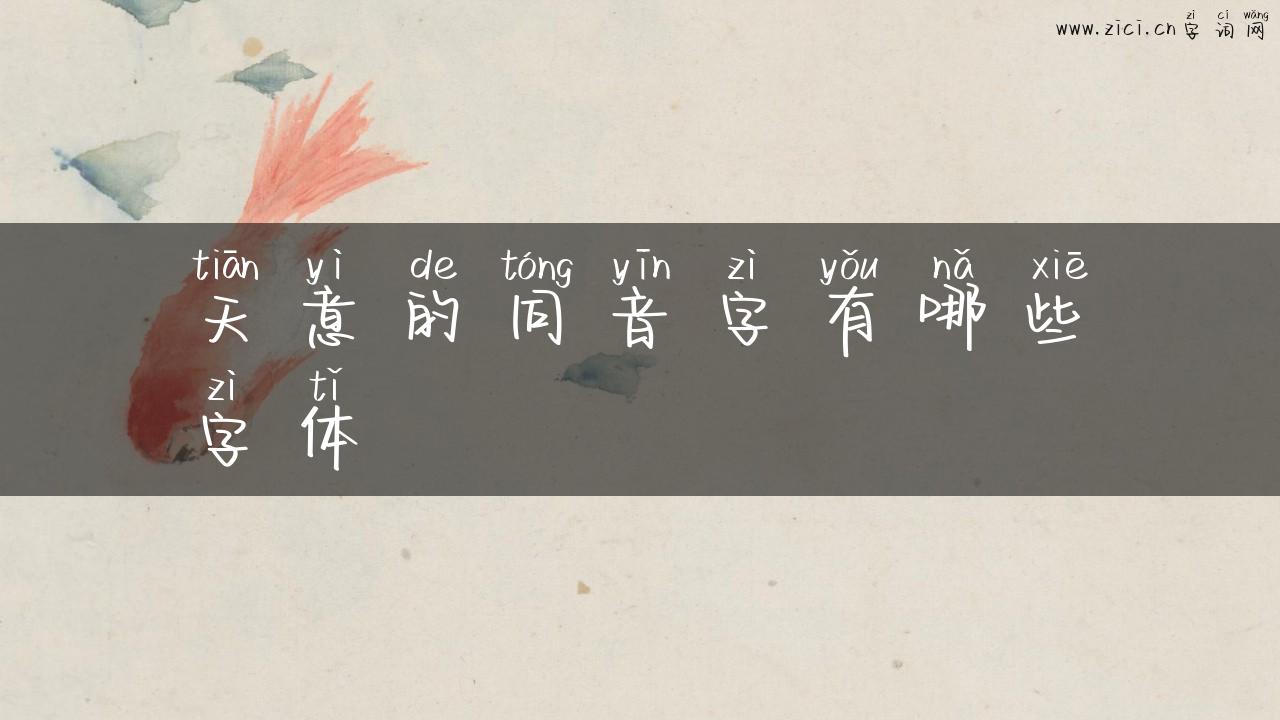 zì cí wǎng
www.zici.cn 字 词 网
tiān yì de tóng yīn zì yǒu nǎ xiē
天 意 的 同 音 字 有 哪 些
zì tǐ
字 体